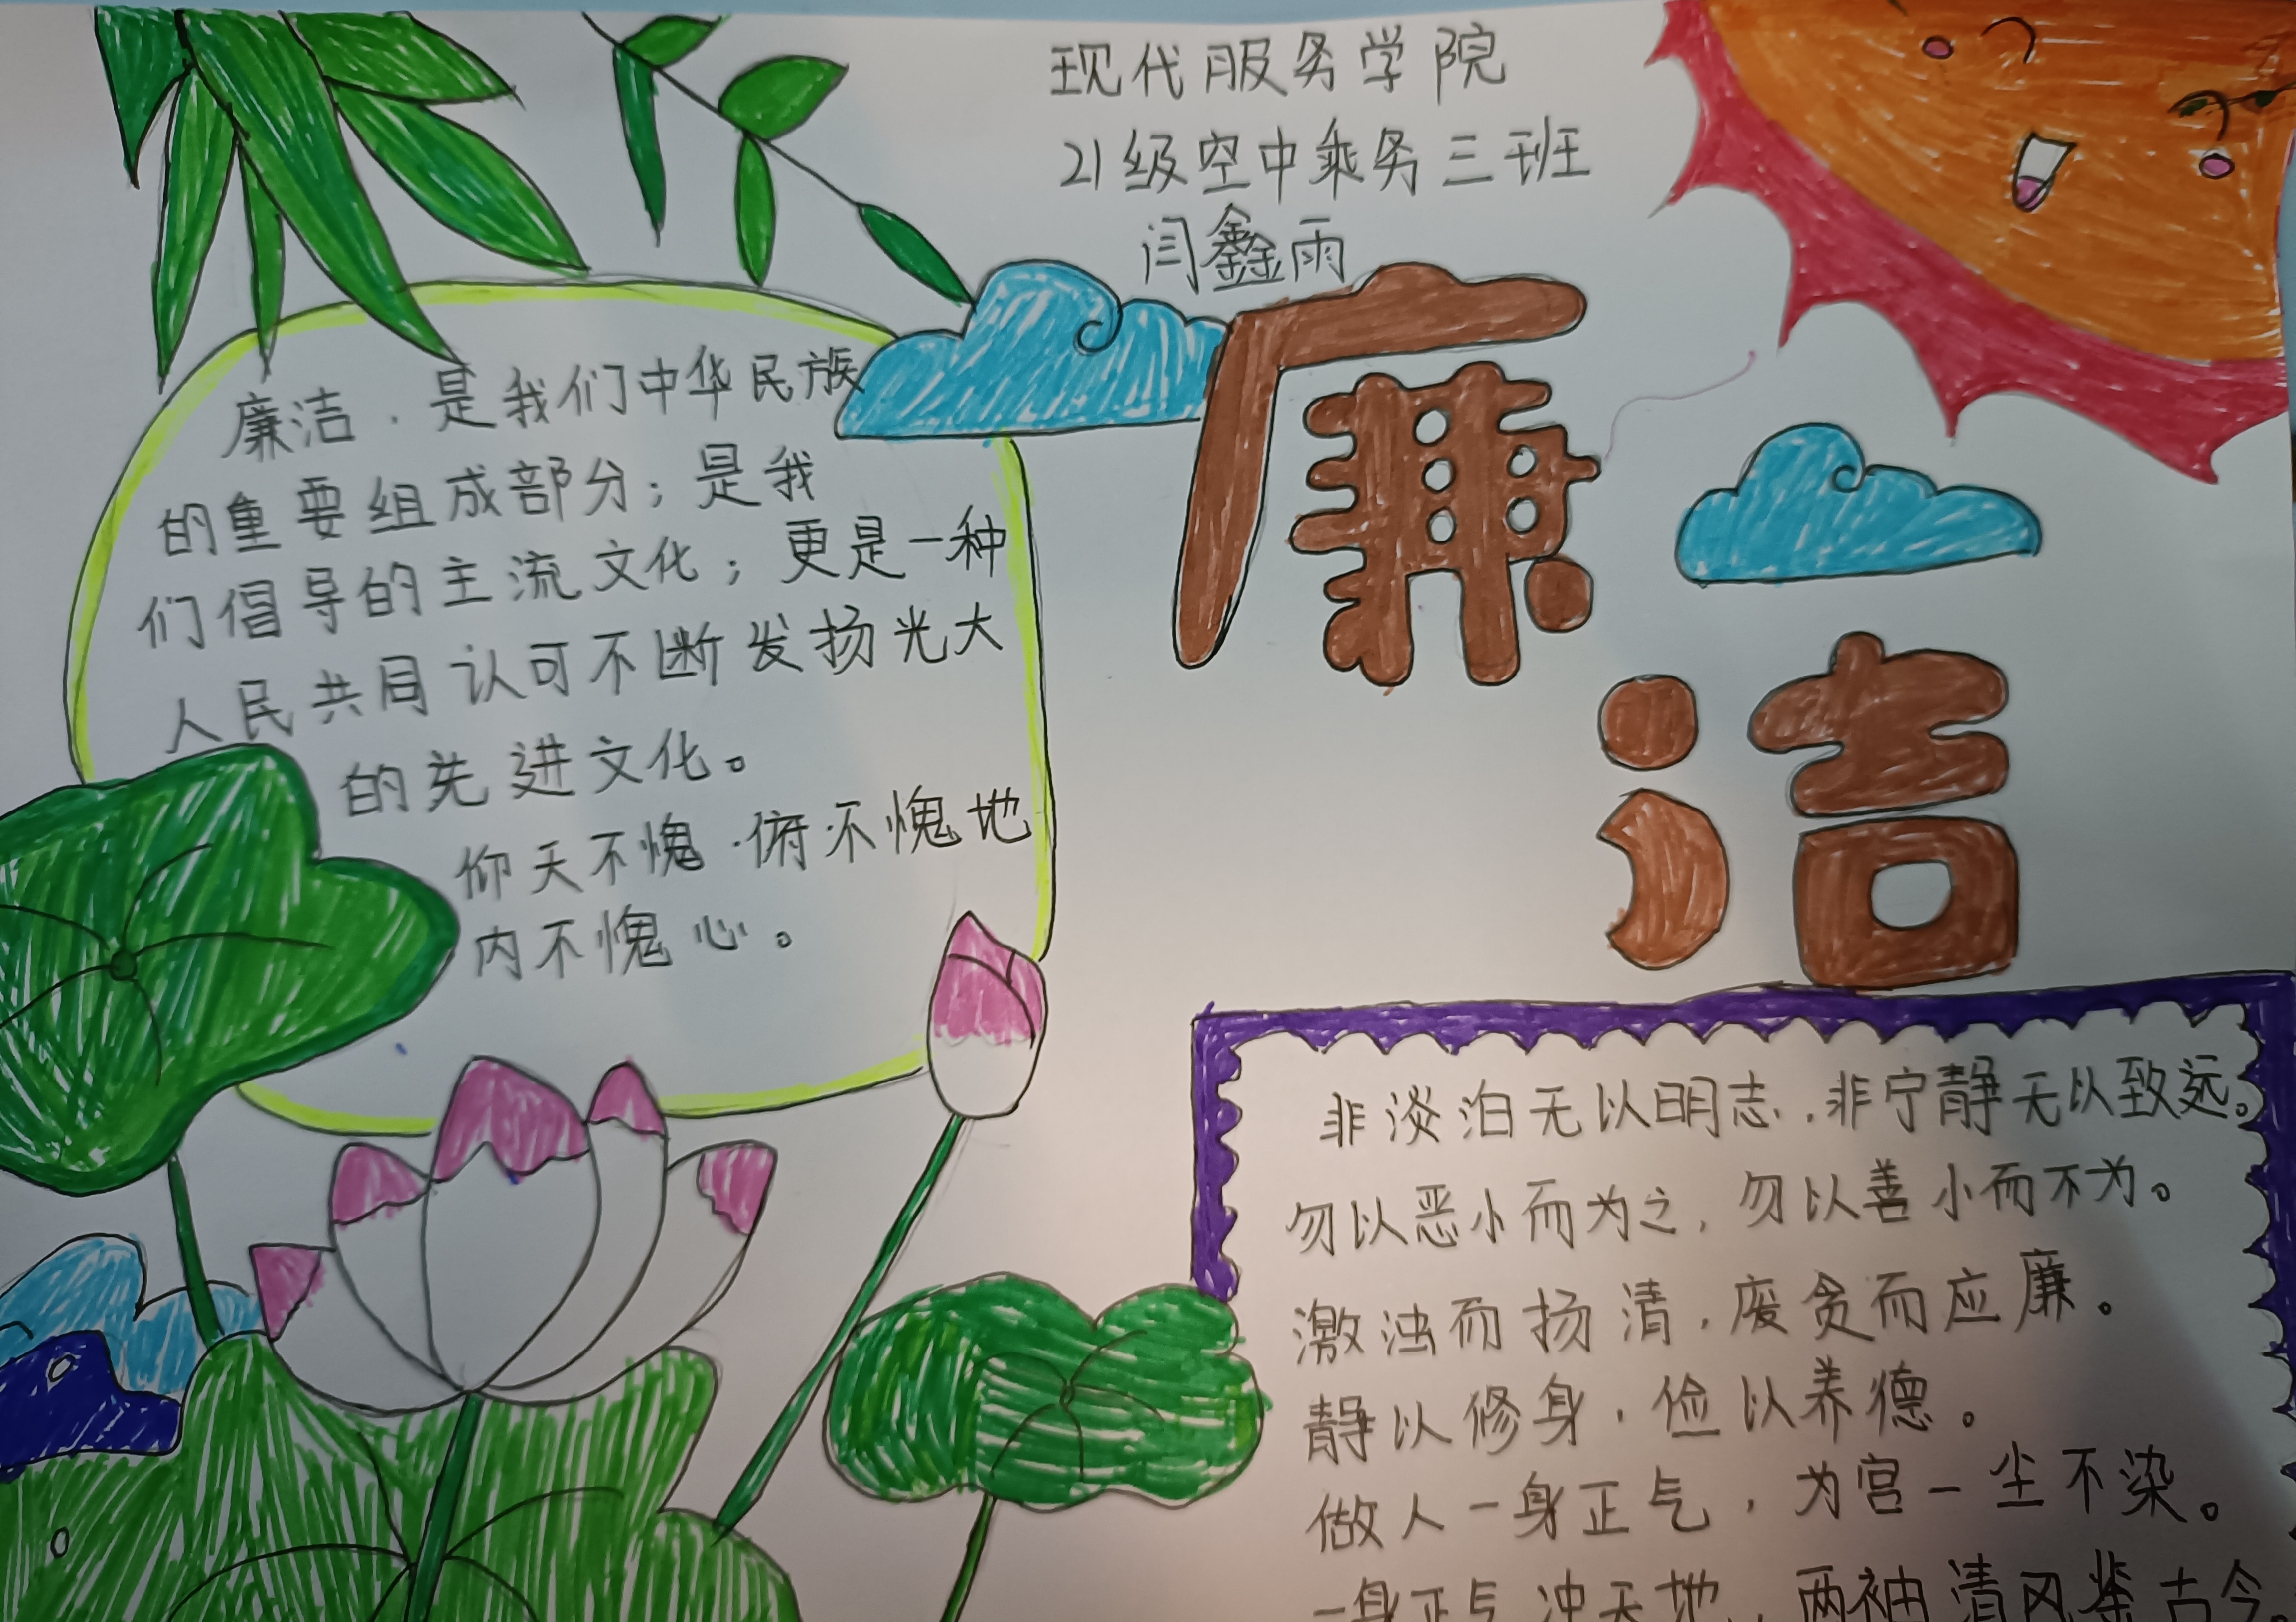 现代服务学院
21级空中乘务三班
闫鑫雨
廉洁
廉洁,是我们中华民族
的重要组成部分;是我
们倡导的主流文化;更是一种
人民共同认可不断发扬光大
的先进文化。
仰天不愧,俯不愧地
内不愧心。
非淡泊无以明志,非宁静无以致远。
勿以恶小而为之,勿以善小而不为。
激浊而扬清,废贪而应廉。
静以修身,俭以养德。
做人一身正气,为宫一尘不染。
一身正气冲天地,两袖清风鉴古今